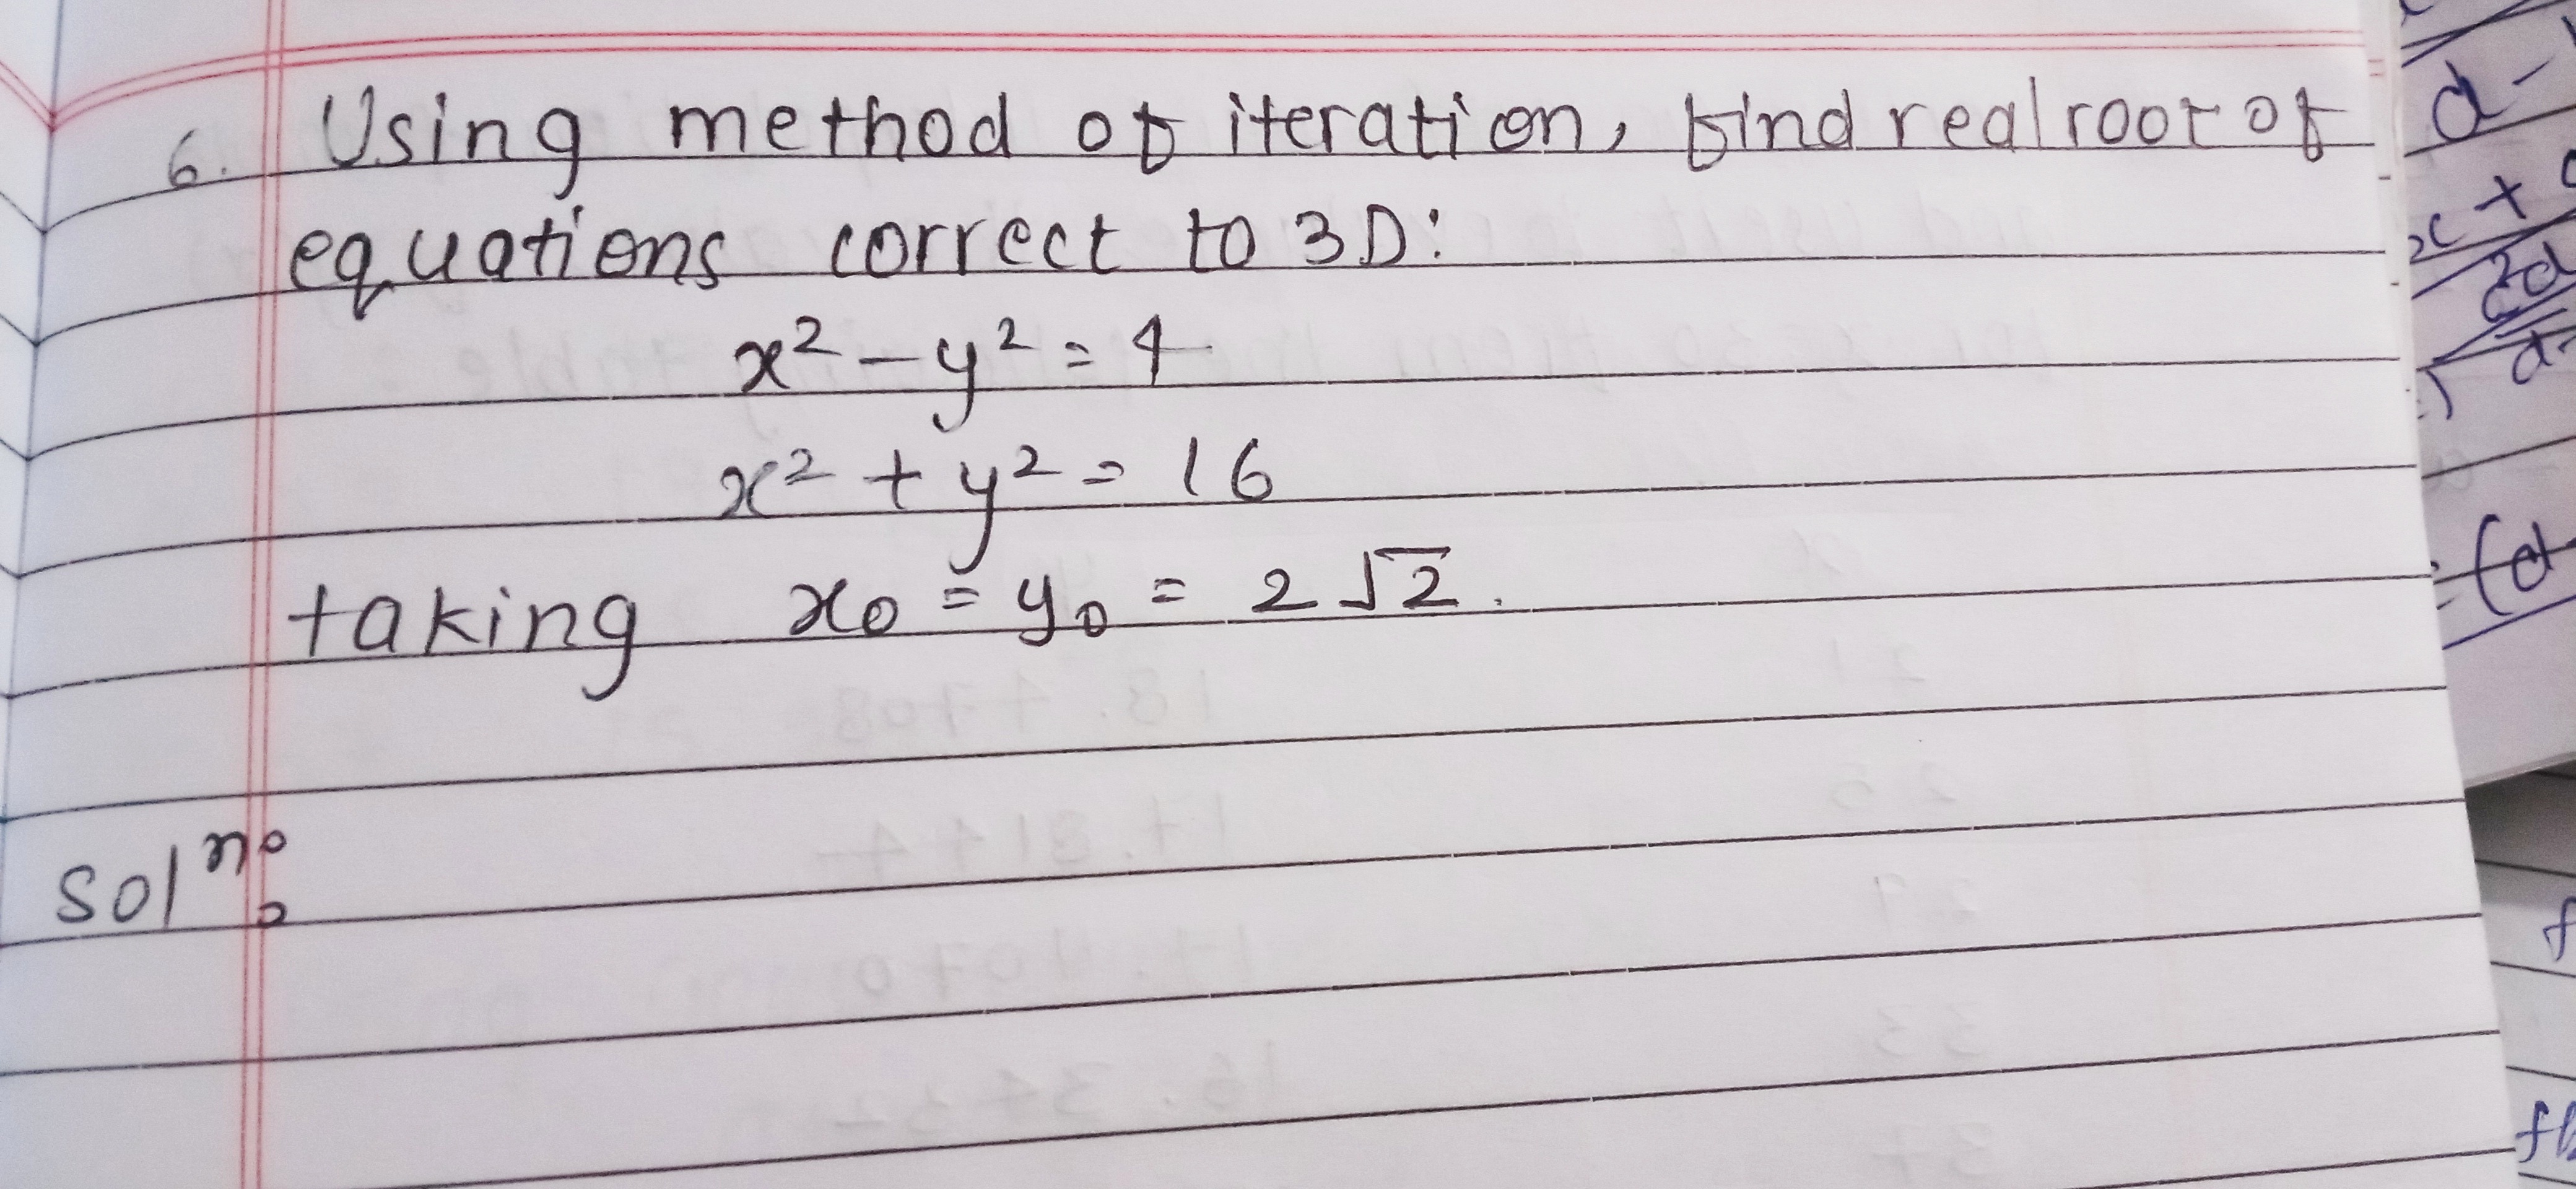 6. Using method of iteration, find real root of
equations correct to 3D:
x² - y² = 4
x² + y² = 16
taking x₀ = y₀ = 2√2.
Solⁿ: